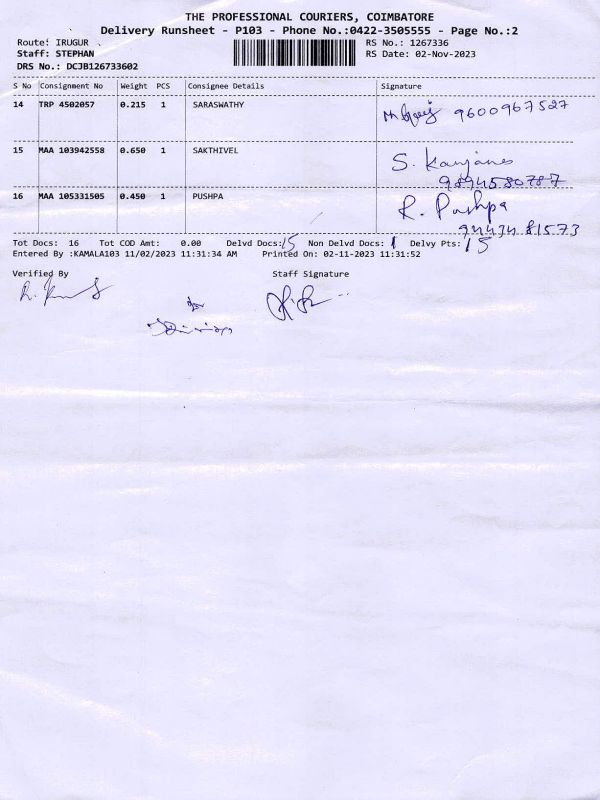 THE PROFESSIONAL COURIERS, COIMBATORE
Delivery Runsheet - P103 - Phone No.:0422-3505555 - Page No.:2
Route: IRUGUR RS No.: 1267336
Staff: STEPHAN RS Date: 02-Nov-2023
DRS No.: DCJB126733602
S No Consignment No Weight PCS Consignee Details Signature
14 TRP 4502057 0.215 1 SARASWATHY
9600967527
15 MAA 103942558 0.650 1 SAKTHIVEL S.
9894580787
16 MAA 105331505 0.450 1 PUSHPA R. Pushpa
94434 81573
Tot Docs: 16 Tot COD Amt: 0.00 Delvd Docs: 15 Non Delvd Docs: 1 Delvy Pts: 15
Entered By :KAMALA103 11/02/2023 11:31:34 AM Printed On: 02-11-2023 11:31:52
Verified By Staff Signature